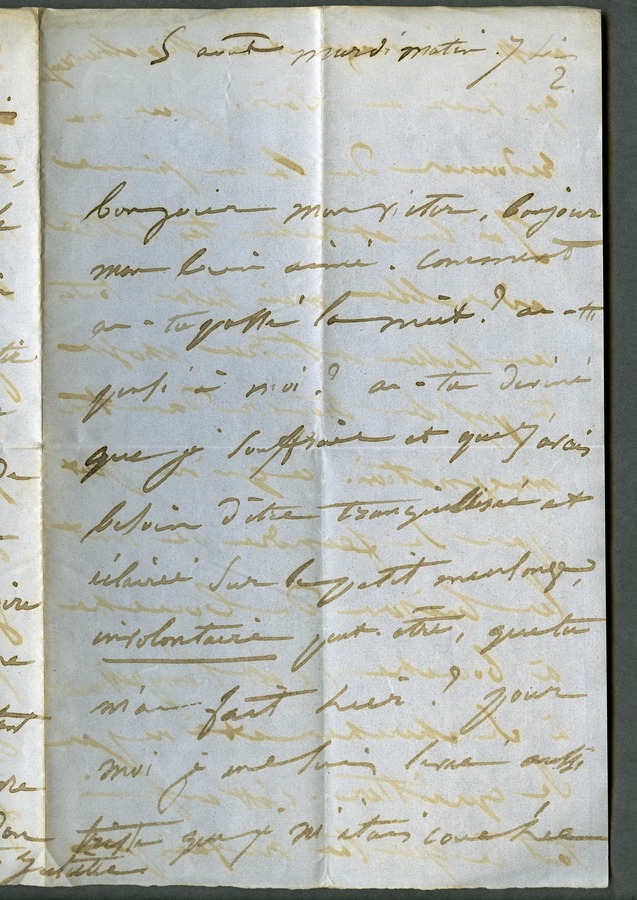 5 août mardi matin. 7 h
2.
bonjour mon victor, bonjour
mon bien aimé. Comment
as-tu passé la nuit ? as-tu
pensé à moi ? as-tu deviné
que je souffrais et que j'avais
besoin d'être tranquillisée et
éclairée sur le petit mensonge,
involontaire peut-être, que tu
m'as fait hier ? pour
moi je me suis levée aussi
triste que je m'étais couchée
Juliette